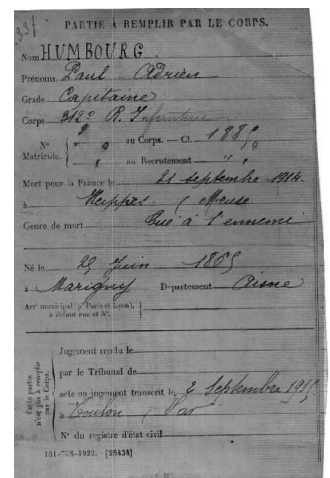 337
PARTIE A REMPLIR PAR LE CORPS.
Nom HUMBOURG
Prénoms Paul Adrien
Grade Capitaine
Corps 312e R. Infanterie
N° au Corps. — Cl.
Matricule. au Recrutement
Mort pour la France le 21 septembre 1914
à (Meuse
Genre de mort Tué à l'ennemi
Né le Juin
à Marigny Département Aisne
Arr' municipal (pr Paris et Lyon),
à défaut rue et N°.
Cette partie
n'est pas à remplir
par le Corps.
Jugement rendu le
par le Tribunal de
acte ou jugement transcrit le 2 Septembre
à Toulon, Var
N° du registre d'état civil
101-708-1922. [26434]